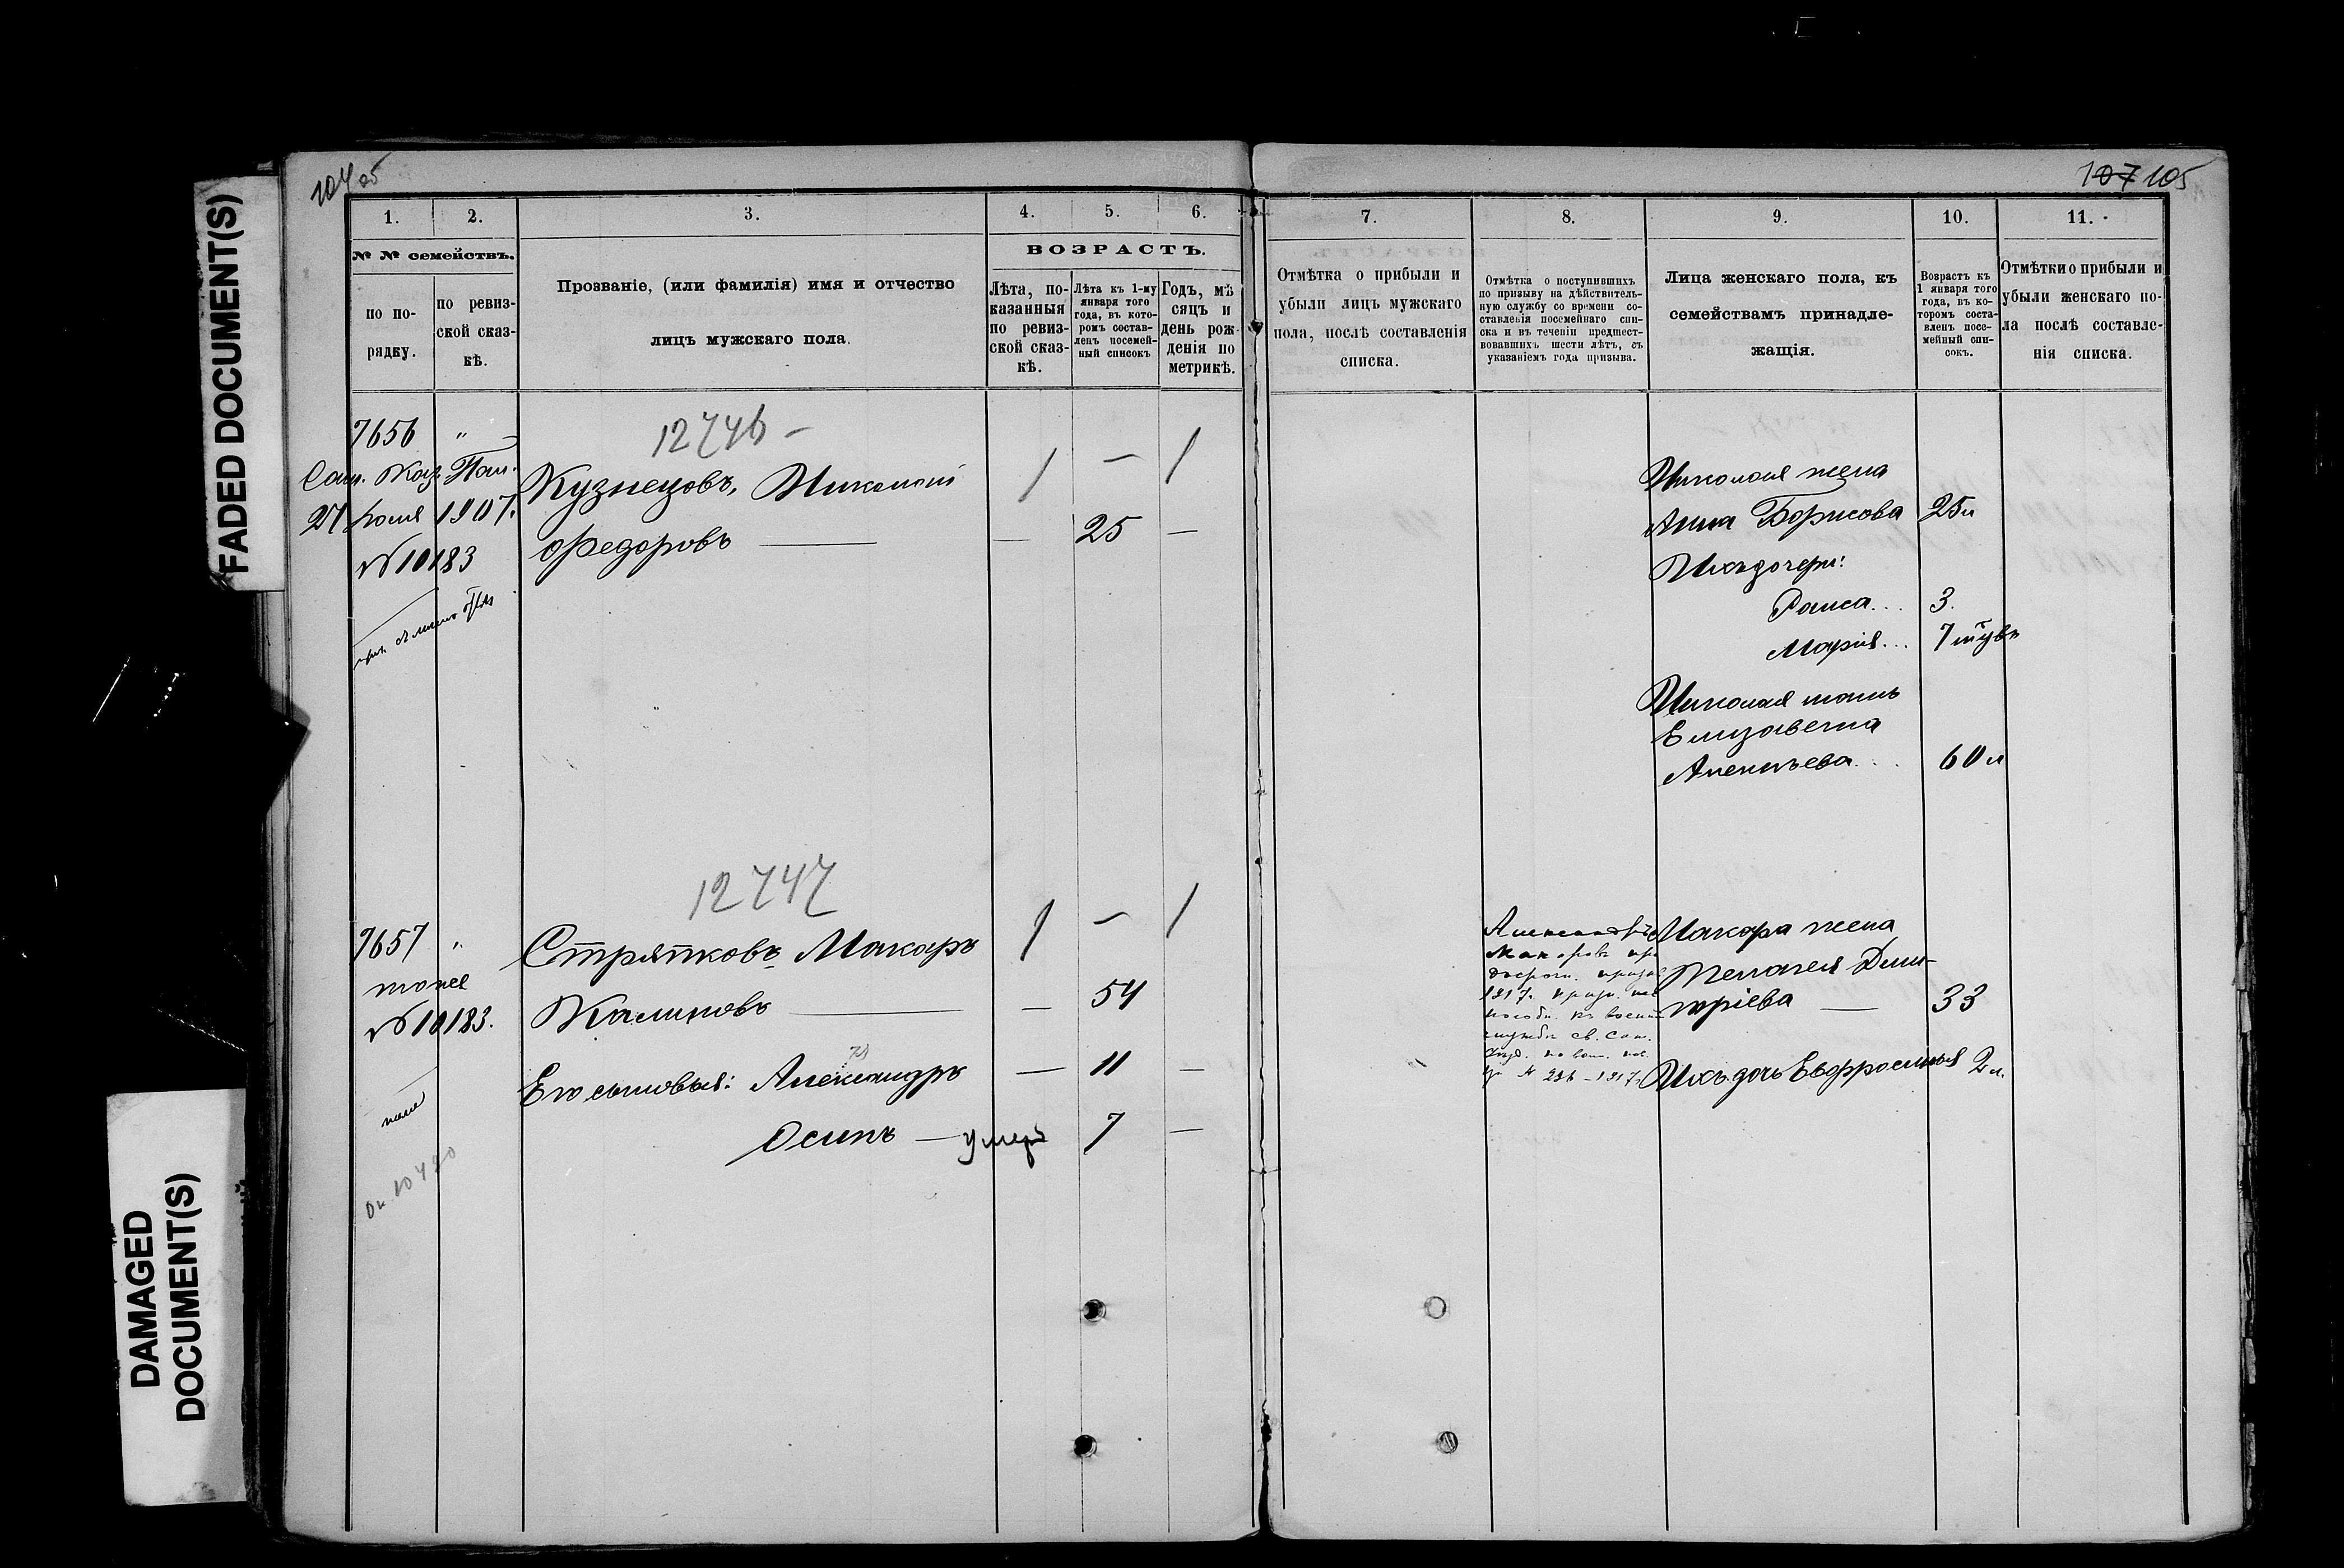 FADED DOCUMENT(S)
DAMAGED
DOCUMENT(S)
104
1.
2.
3.
4.
5.
6.
№ № семействъ.
ВОЗРАСТЪ.
по по-
рядку.
по ревиз-
ской сказ-
кѣ.
Прозваніе, (или фамилія) имя и отчество
лицъ мужскаго пола.
Лѣта, по-
казанныя
по ревиз-
ской сказ-
кѣ.
Лѣта къ 1-му
января того
года, въ кото-
ромъ состав-
ленъ посемей-
ный списокъ
Годъ, мѣ
сяцъ и
день рож-
денія по
метрикѣ.
7656 "
12746
Сам. Каз. Пал.
27 Іюля 1907.
№ 10183
Кузнецовъ, Николай
Федоровъ — 25 —
12747
7657 "
тоже
№ 10183.
Стряпковъ Макаръ
Калиновъ — 54
Его сыновья: Александръ — 11 —
Осипъ — умеръ 7 —
Оп. 10480
107 105
7.
8.
9.
10.
11.
Отмѣтка о прибыли и
убыли лицъ мужскаго
пола, послѣ составленія
списка.
Отмѣтка о поступившихъ
по призыву на дѣйствитель-
ную службу со времени со-
ставленія посемейнаго спи-
ска и въ теченіи предшест-
вовавшихъ шести лѣтъ, съ
указаніемъ года призыва.
Лица женскаго пола, къ
семействамъ принадле-
жащія.
Возрастъ къ
1 января того
года, въ ко-
торомъ соста-
вленъ посе-
мейный спи-
сокъ.
Отмѣтки о прибыли и
убыли женскаго по-
ла послѣ составле-
нія списка.
Николая жена
Анна Борисова 25 л
Ихъ дочери:
Раиса... 3.
Марія... 7
Николая мать
Елизавета
60 л
Александръ
Макаровъ
службѣ
Макара жена
Пелагея Дми-
тріева — 33
Ихъ дочь Евфросинья 2 л.